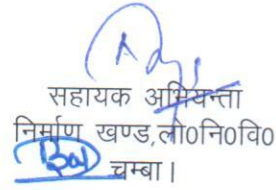 सहायक अभियन्ता
निर्माण खण्ड,लो०नि०वि०
चम्बा।